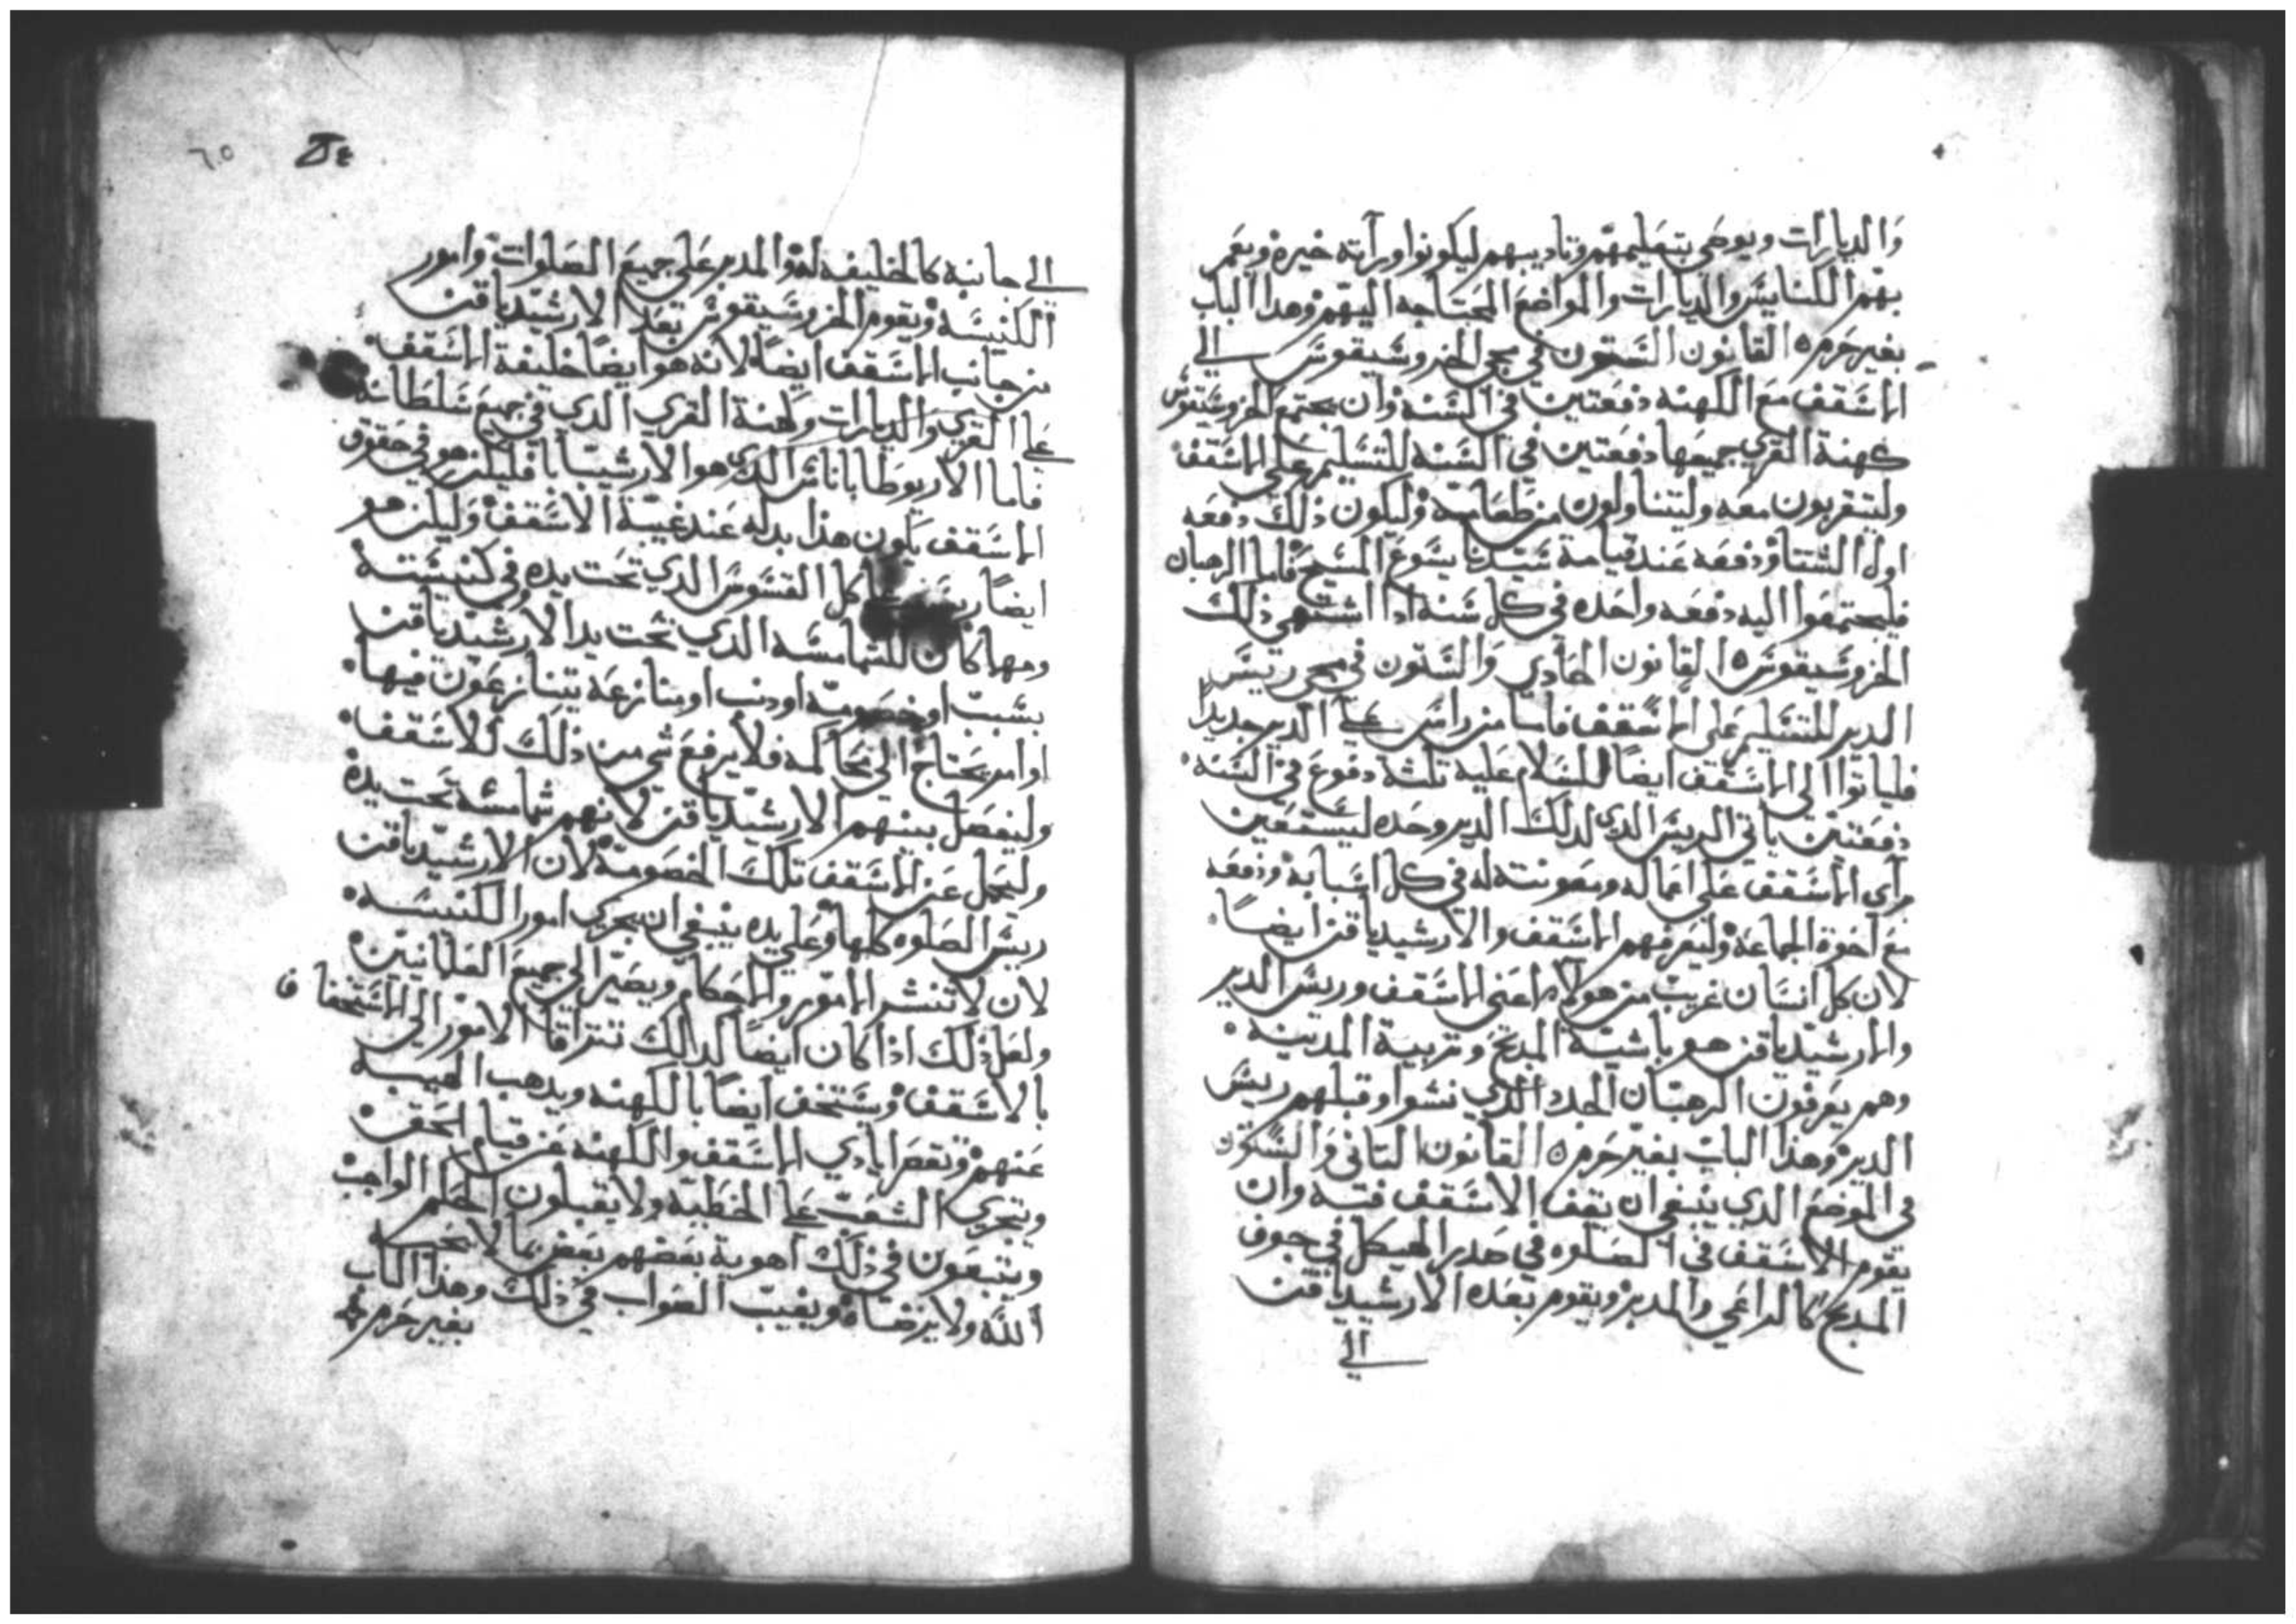 والديارات ويوصي بتعليمهم وتاديبهم ليكونوا ورآته خيره ويعمر
بهم الكنايس والديارات والمواضع المحتاجه اليهم وهدا الباب
بغير حرم ٥ القانون الستون في مجي الخروسيقوس الي
الاسقف مع الكهنه دفعتين في السنه وان يجتمع الخروسيقوس
كهنة القري جميعها دفعتين في السنه للتسليم علي الاسقف
وليتقربون معه وليتناولون من طعامه وليكون ذلك دفعه
اول الشتا ودفعه عند قيامة سيدنا يسوع المسيح فاما الرهبان
فليجتمعوا اليه دفعه واحده في كل سنه ادا اشتهي ذلك
الخروسيقوس ٥ القانون الحادي والستون في مجي رييس
الدير للتسليم علي الاسقف فاما من راس علي الدير جديدا
فلياتوا الي الاسقف ايضا للسلام عليه تلته دفوع في السنه
دفعتين ياتي الرييس الدي لدلك الدير وحده ليستعين
براي الاسقف علي اعماله ومعونته له في كل اسبابه ودفعه
مع اخوة الجماعه وليعرفهم الاسقف والارشيدياقن ايضا
لان كل انسان غريب من هولاء اعني الاسقف ورييس الدير
والارشيدياقن هو باشية المدبح وتربية المدينه
وهم يعرفون الرهبان الجدد الدي نشوا وقبلهم رييس
الدير وهدا الباب بغير حرم ٥ القانون التاني والستون
في الموضع الدي ينبغي ان يقف الاسقف فيه وان
يقوم الاسقف في الصلوه في صدر الهيكل في جوف
المدبح كالراعي والمدبر ويقوم بعده الارشيدياقن
الي
٦٥
الي جانبه كالخليفه له والمدبر علي جميع الصلوات وامور
الكنيسه ويقوم الخروسيقوس بعد الارشيدياقن
من جانب الاسقف ايضا لانه هو ايضا خليفة الاسقف
علي القري والديارات وكهنة القري الدي في جميع سلطانه
فاما الاربوطاباناس الدي هو الارشيبابا فليكن هو في حقوق
الاسقف يكون هدا بدله عند غيبة الاسقف وليكن هو
ايضا كل القسوس الدي تحت يده في كنيسته
ومهما كان للشمامسه الدي تحت يد الارشيدياقن
بسبب او خصومه او دنب او منازعه يتنازعون فيها
او امر يحتاج الي محاكمه فلا يرفع شي من ذلك للاسقف
وليفصل بينهم الارشيدياقن لانهم شمامسه تحت يده
وليحمل عن الاسقف تلك الخصومه لان الارشيدياقن
رييس الصلوه كلها وعلي يده ينبغي ان يجري امور الكنيسه
لان لا تنشر الامور والاحكام ويصير الي جميع العلمانيين
ولعل ذلك اذا كان ايضا لدالك تتراقا الامور الي الاستخفاف
بالاسقف ويستخف ايضا بالكهنه ويدهب الهيبه
عنهم وتقصر ايادي الاسقف والكهنه عن قيام الحق
ويتجري الشعب علي الخطيه ولا يقبلون الحكم الواجب
ويتبعون في ذلك اهوية بعضهم بعض بما لا يحبه
الله ولا يرضاه ويغيب الصواب في ذلك وهدا الباب
بغير حرم